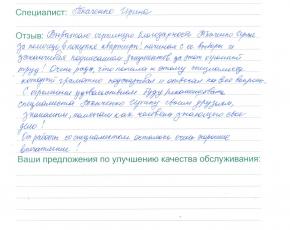 Специалист: Ткаченко Ирина
Отзыв: Выражаю огромную благодарность Ткаченко Ирине
за помощь в покупке квартиры! начиная с ее выбора и
заканчивая подписанием документов за этот огромный
труд! Очень рада, что попала к этому специалисту,
который грамотно подсказывал и отвечал на все вопросы.
С огромным удовольствием буду рекомендовать
специалиста Ткаченко Ирину своим друзьям,
знакомым, коллегам как человека знающего свое
дело!
От работы со специалистом осталось очень хорошее
впечатление!
Ваши предложения по улучшению качества обслуживания: